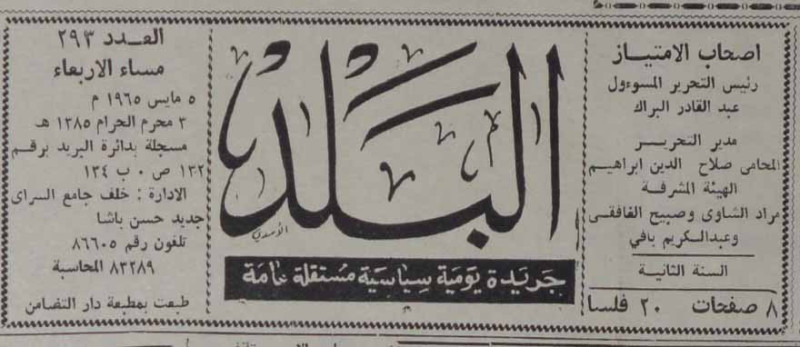 اصحاب الامتياز
رئيس التحرير المسوءول
عبد القادر البراك
مدير التحرير
المحامى صلاح الدين ابراهيم
الهيئة المشرفة
مراد الشاوى وصبيح الغافقى
وعبدالكريم بافي
السنة الثانية
٨ صفحات ٢٠ فلسا
البلد
الأمدي
جريدة يومية سياسية مستقلة عامة
العدد ٢٩٣
مساء الاربعاء
٥ مايس ١٩٦٥ م
٣ محرم الحرام ١٣٨٥ هـ
مسجلة بدائرة البريد برقم
١٣٢ ص ٠ ب ١٣٤
الادارة : خلف جامع السراى
جديد حسن باشا
تلفون رقم ٨٦٦٠٥
٨٣٢٨٩ المحاسبة
طبعت بمطبعة دار التضامن